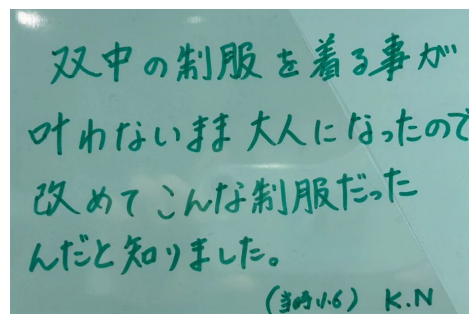 双中の制服を着る事が
叶わないまま大人になったので
改めてこんな制服だった
んだと知りました。
(当時小6) K.N